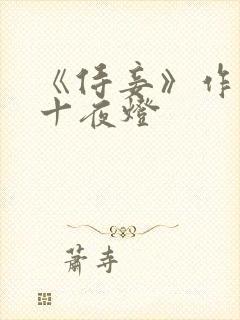 《侍妾》作
十夜燈
蕭寺